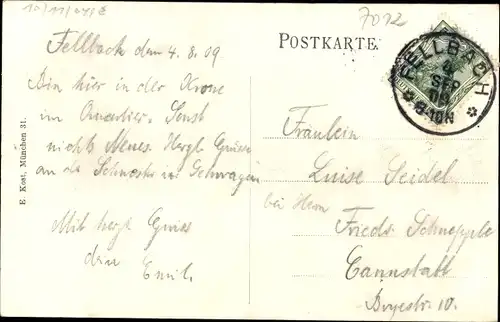 10/11/
7012
POSTKARTE.
FELLBACH
4
SEP
09
8-10N
Fellbach dem 4.8.09
Bin hier in der Krone
im Quartier. Sonst
nichts Neues. Herzl Gruss
an die Schwester im Schwager
Mit herzl Gruss
dein
Emil.
Fräulein
Luise Seidel
bei Herrn
Frieds. Schnepple
Cannstatt
10.
E. Kost, München 31.